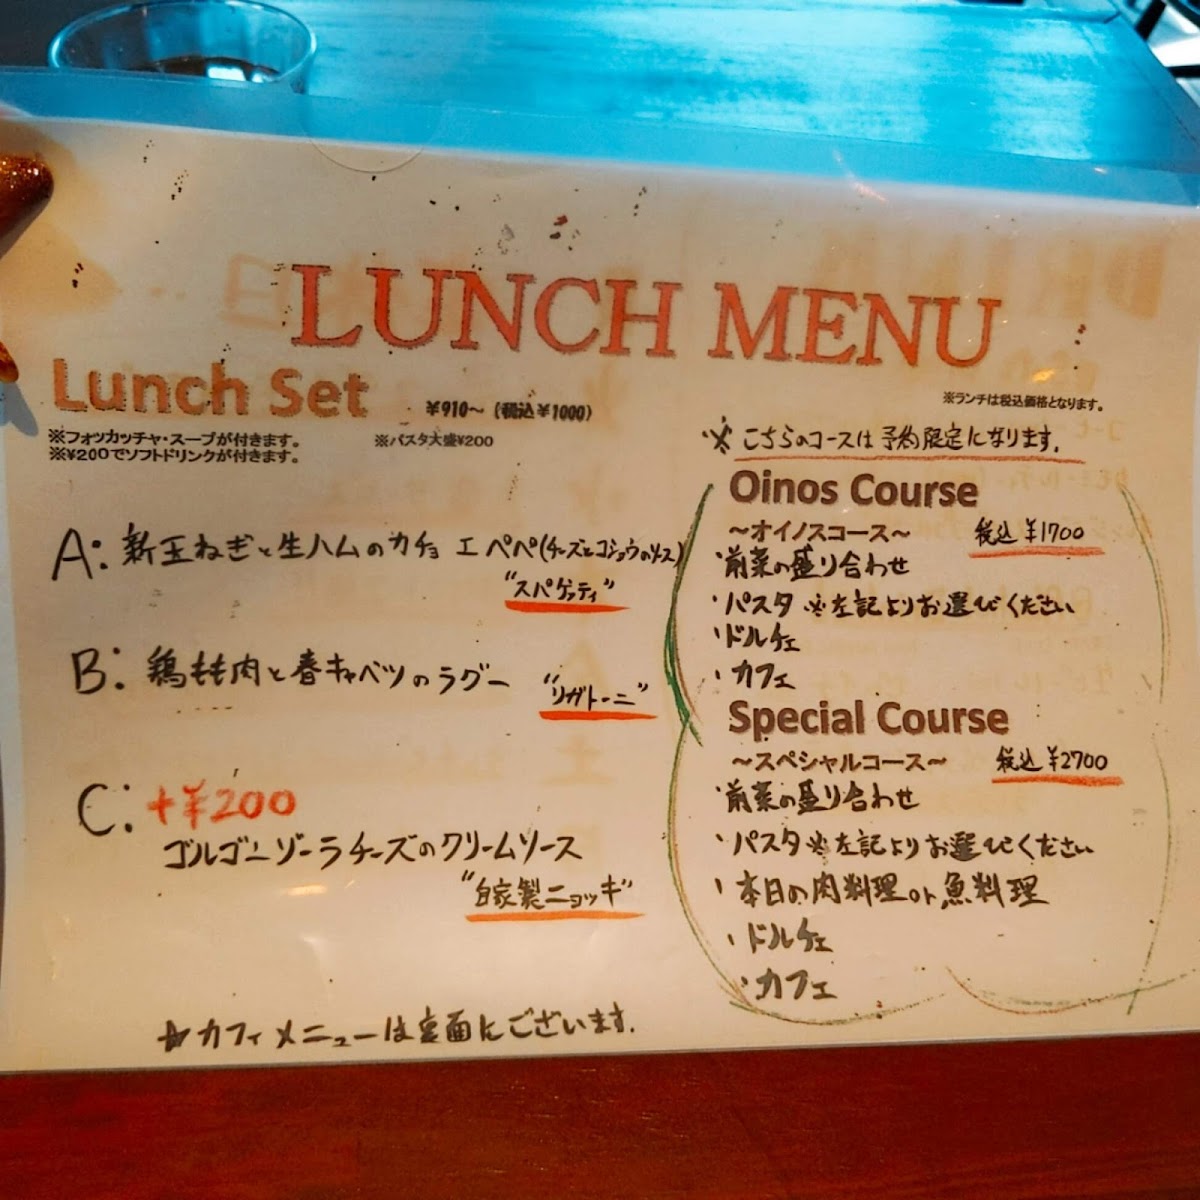 LUNCH MENU
Lunch Set
¥910～ (税込¥1000)
※フォッカッチャ・スープが付きます。
※¥200でソフトドリンクが付きます。
※パスタ大盛¥200
A: 新玉ねぎと生ハムのカチョ エ ペペ(チーズとコショウのソース)
"スパゲッティ"
B: 鶏もも肉と春キャベツのラグー
"リガトーニ"
C: +¥200
ゴルゴンゾーラチーズのクリームソース
"自家製ニョッキ"
☆カフェメニューは裏面にございます.
※ランチは税込価格となります。
※こちらのコースは予約限定になります.
Oinos Course
～オイノスコース～ 税込¥1700
・前菜の盛り合わせ
・パスタ ※左記よりお選びください
・ドルチェ
・カフェ
Special Course
～スペシャルコース～ 税込¥2700
・前菜の盛り合わせ
・パスタ※左記よりお選びください
・本日の肉料理or魚料理
・ドルチェ
・カフェ